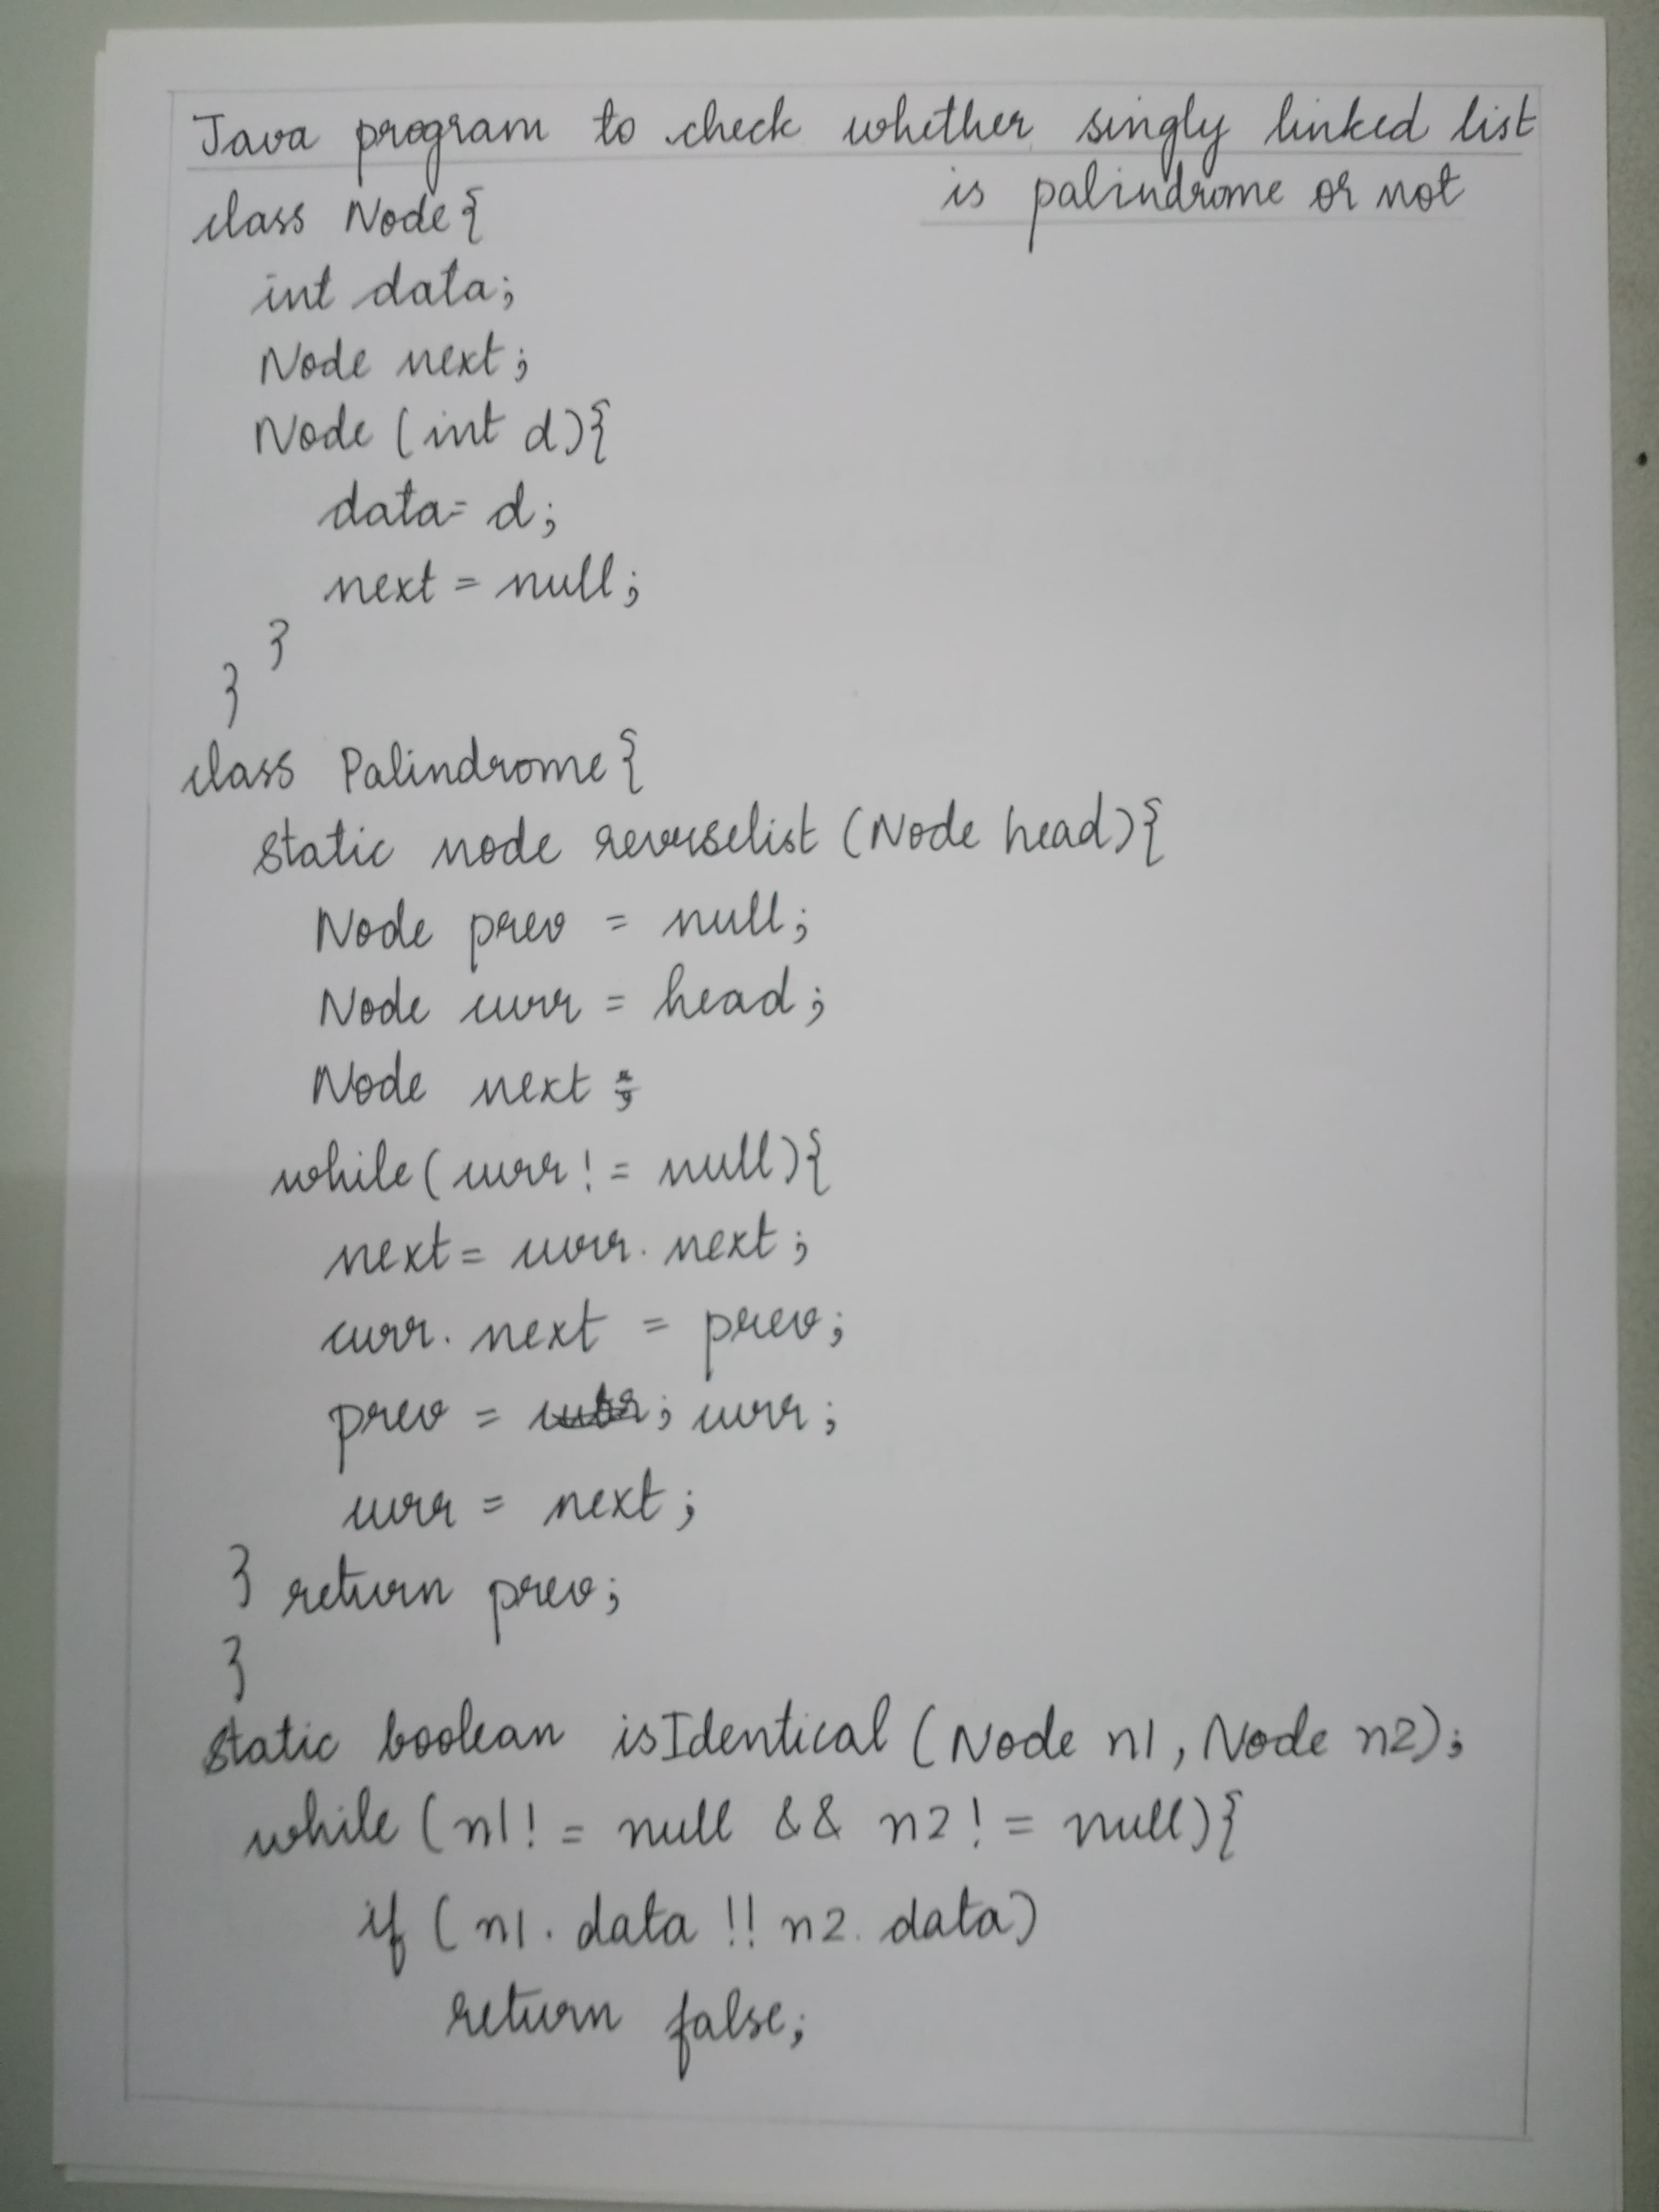 Java program to check whether singly linked list
is palindrome or not
class Node{
int data;
Node next;
Node (int d){
data= d;
next = null;
}
}
class Palindrome{
static node reverselist (Node head){
Node prev = null;
Node curr = head;
Node next ;
while(curr != null){
next = curr. next;
curr. next = prev;
prev = ; curr;
curr = next;
} return prev;
}
static boolean isIdentical (Node n1, Node n2);
while (n1! = null && n2! = null){
if (n1. data !! n2. data)
return false;